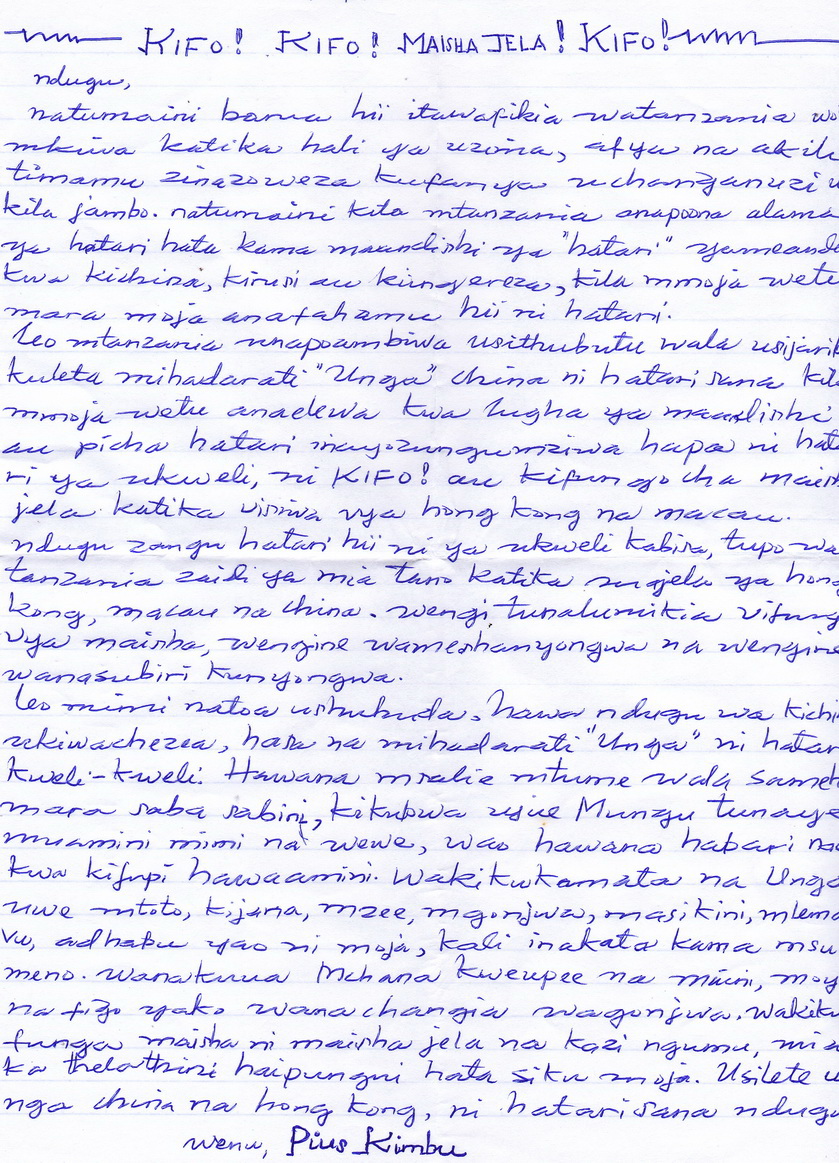 KIFO! KIFO! MAISHA JELA! KIFO!
ndugu,
natumaini barua hii itawafikia watanzania wo
mkiwa katika hali ya uzima, afya na akili
timamu zinazoweza kufanya uchanganuzi w
kila jambo. natumaini kila mtanzania anapoona alama
ya hatari hata kama maandishi ya "hatari" yameandi
kwa kichina, kirusi au kiingereza, kila mmoja wetu
mara moja anafahamu hii ni hatari.
leo mtanzania unapoambiwa usithubutu wala usijarib
kuleta mihadarati "Unga" china ni hatari sana kila
mmoja wetu anaelewa kwa lugha ya maandishi
au picha hatari inayozungumziwa hapa ni hata
ri ya ukweli, ni KIFO! au kifungo cha maish
jela katika visiwa vya hong kong na macau.
ndugu zangu hatari hii ni ya ukweli kabisa, tupo wa
tanzania zaidi ya mia tano katika majela ya hong
kong, macau na china. wengi tunatumikia vifung
vya maisha, wengine wameshanyongwa na wengine
wanasubiri kunyongwa.
leo mimi natoa ushuhuda. hawa ndugu wa kichi
ukiwachezea, hasa na mihadarati "Unga" ni hatar
kweli-kweli. Hawana msalie mtume wala sameh
mara saba sabini, kikubwa ujue Mungu tunaye
muamini mimi na wewe, wao hawana habari na
kwa kifupi hawaamini. Wakikukamata na Unga
uwe mtoto, kijana, mzee, mgonjwa, masikini, mlema
vu, adhabu yao ni moja, kali inakata kama msu
meno. wanakuua Mchana kweupee na maini, moy
na figo yako wanachangia wagonjwa. wakiku
funga maisha ni maisha jela na kazi ngumu, mia
ka thelathini haipungui hata siku moja. Usilete u
nga china na hong kong, ni hatari sana ndugu
wenu, Pius Kimbu